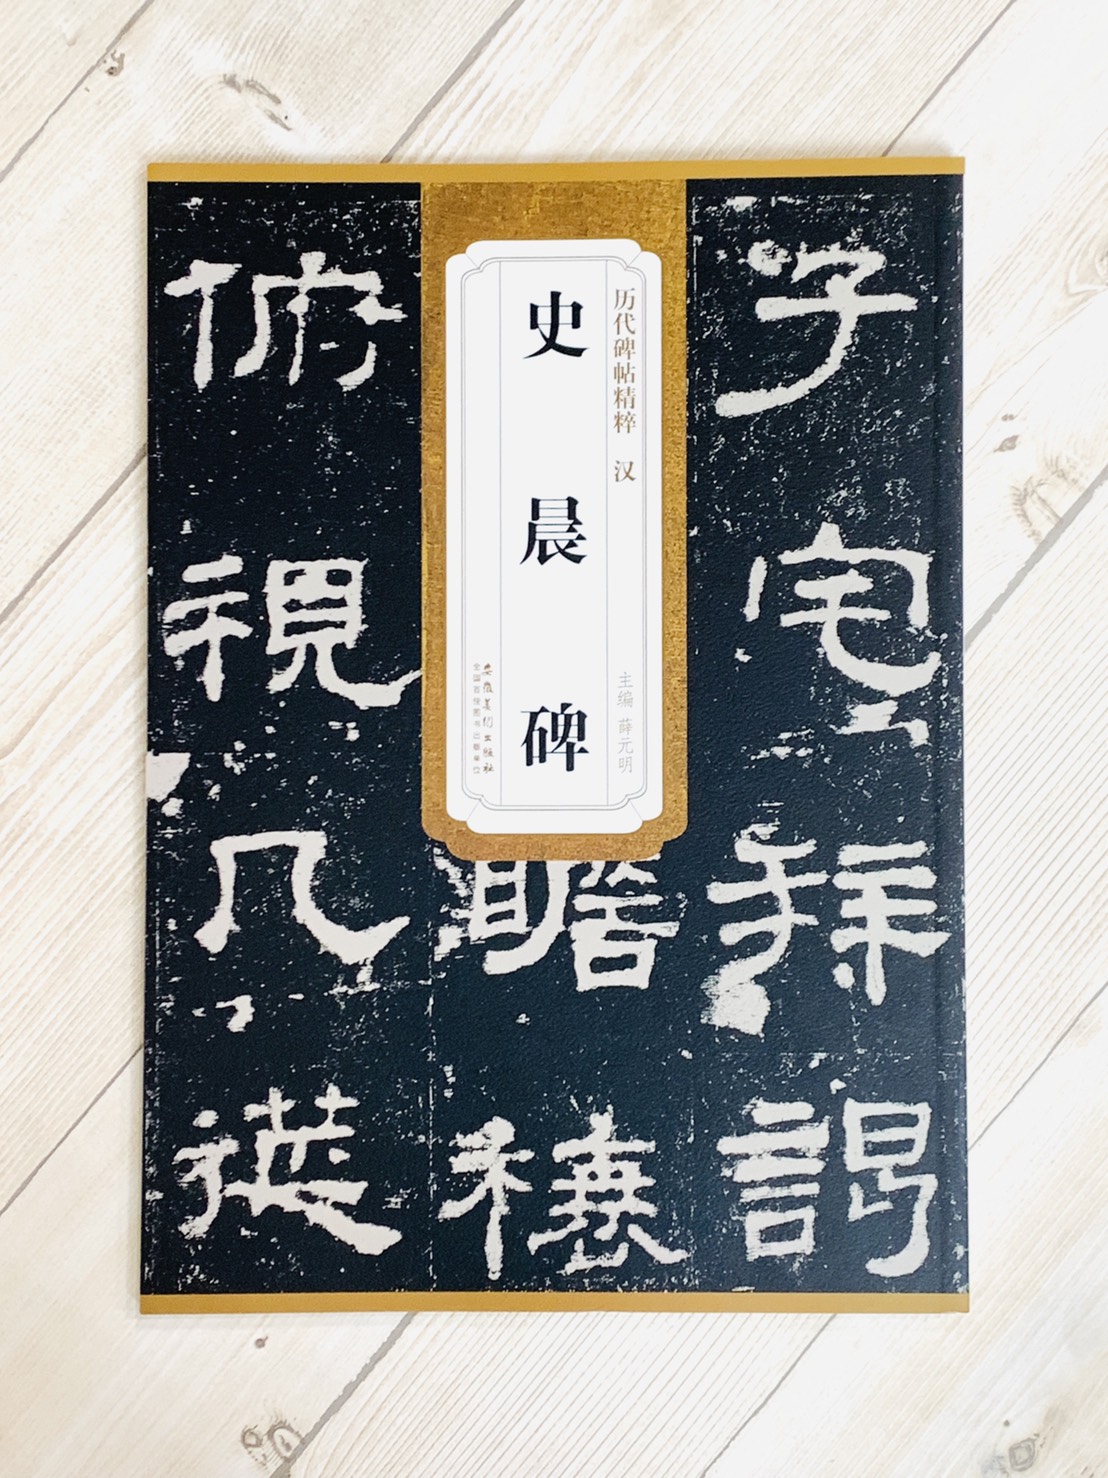 历代碑帖精粹 汉
史晨碑
主编 薛元明
安徽美术出版社
全国百佳图书出版单位
子宅拜謁
瞻
俯視几筵